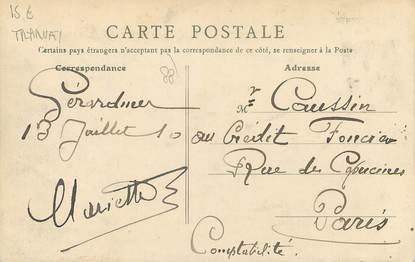 15 €
TRAMWAY
CARTE POSTALE
Certains pays étrangers n'acceptant pas la correspondance de ce côté, se renseigner à la Poste
Correspondance
Adresse
Gérardmer
13 Juillet 10
Mariette
Mr Caussin
au Crédit Foncier
Rue des Cpucines
Paris
Comptabilité.